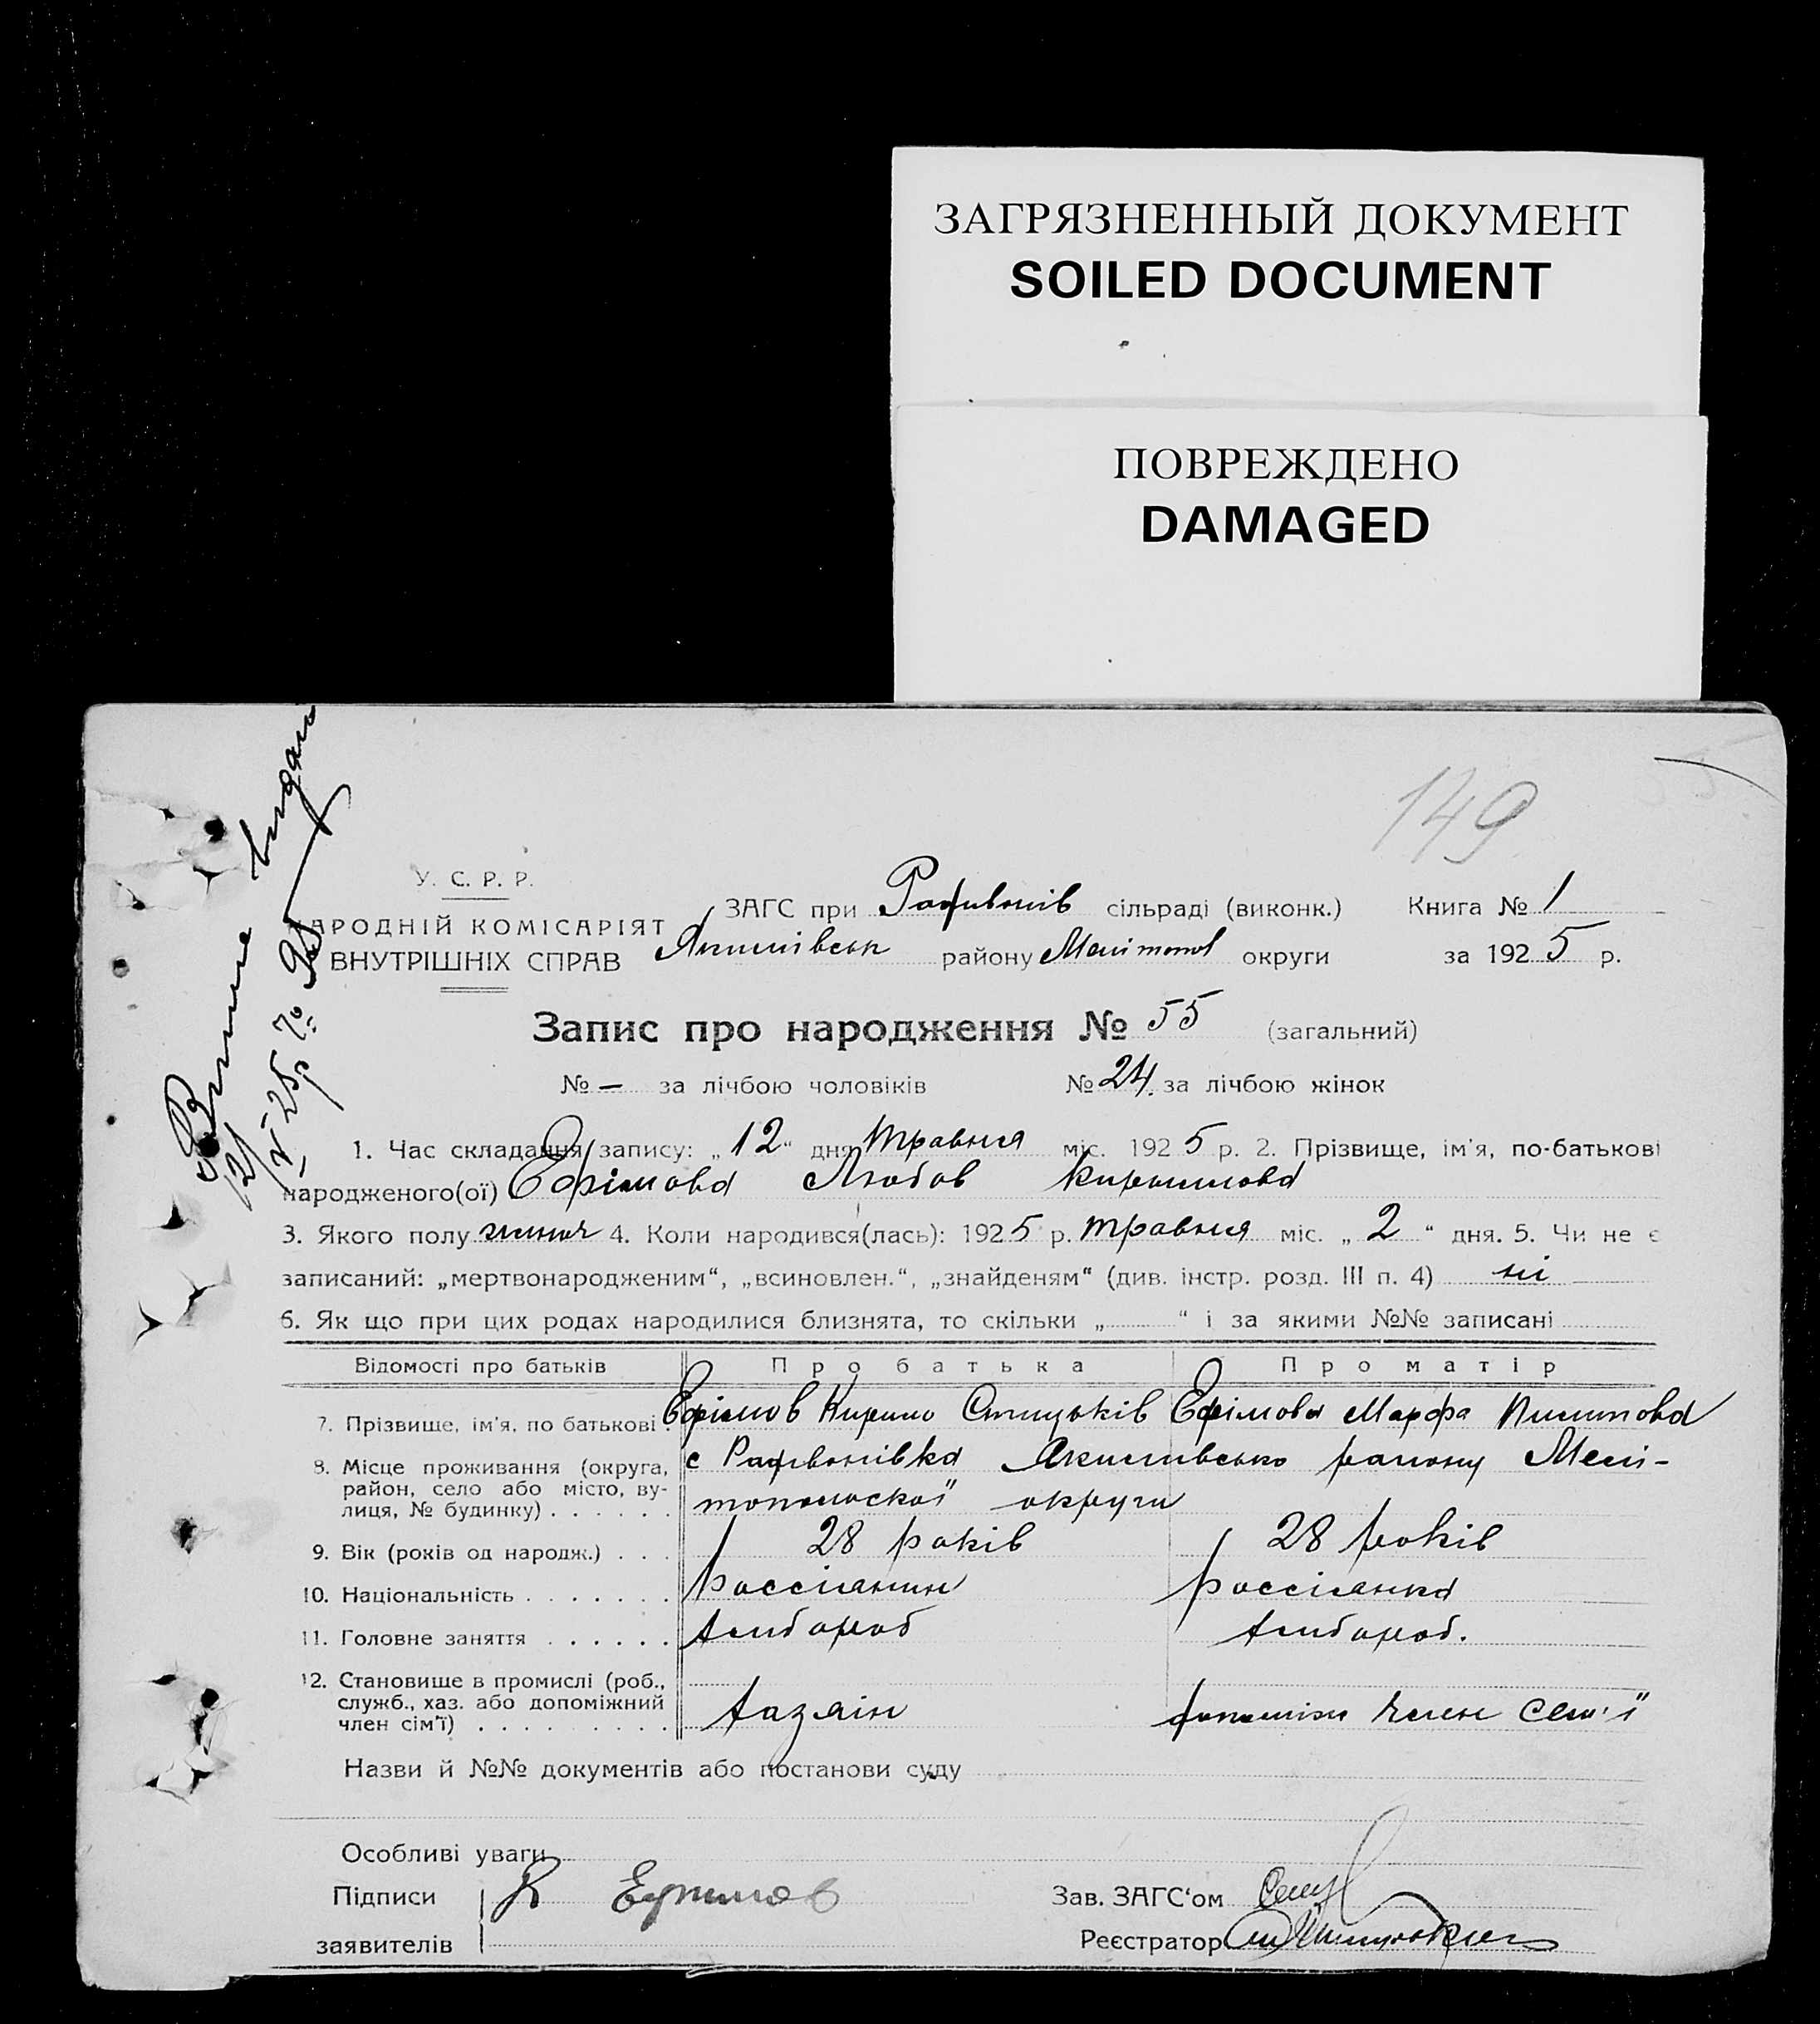 ЗАГРЯЗНЕННЫЙ ДОКУМЕНТ
SOILED DOCUMENT
ПОВРЕЖДЕНО
DAMAGED
149
У. С. Р. Р.
НАРОДНІЙ КОМІСАРІЯТ
ВНУТРІШНІХ СПРАВ
ЗАГС при сільраді (виконк.) Книга № 1
Якимівськ району Мелітопол округи за 1925 р.
Запис про народження № 55 (загальний)
№ — за лічбою чоловіків № 24. за лічбою жінок
1. Час складання запису: „12“ дня Травня міс. 1925 р. 2. Прізвище, ім'я, по-батькові
народженого(ої) Ефімова Любов Кирилова
3. Якого полу жіноч 4. Коли народився(лась): 1925 р. травня міс. „2“ дня. 5. Чи не є
записаний: „мертвонародженим“, „всиновлен.“, „знайденям“ (див. інстр. розд. III п. 4) ні
6. Як що при цих родах народилися близнята, то скільки „ “ і за якими №№ записані
Відомості про батьків Про батька Про матір
7. Прізвище, ім'я, по батькові. Ефімов Кирило Ефімова Марфа
8. Місце проживання (округа, район, село або місто, вулиця, № будинку) с Якимивсько району Мелі-
топольскої округи
9. Вік (років од народж.) 28 років 28 років
10. Національність россіянин россіянка
11. Головне заняття хлібороб хлібороб.
12. Становище в промислі (роб., служб., хаз. або допоміжний член сім'ї) хазяін допоміжн член сем'ї
Назви й №№ документів або постанови суду
Особливі уваги
Підписи К Ефимов Зав. ЗАГС'ом
заявителів Реєстратор